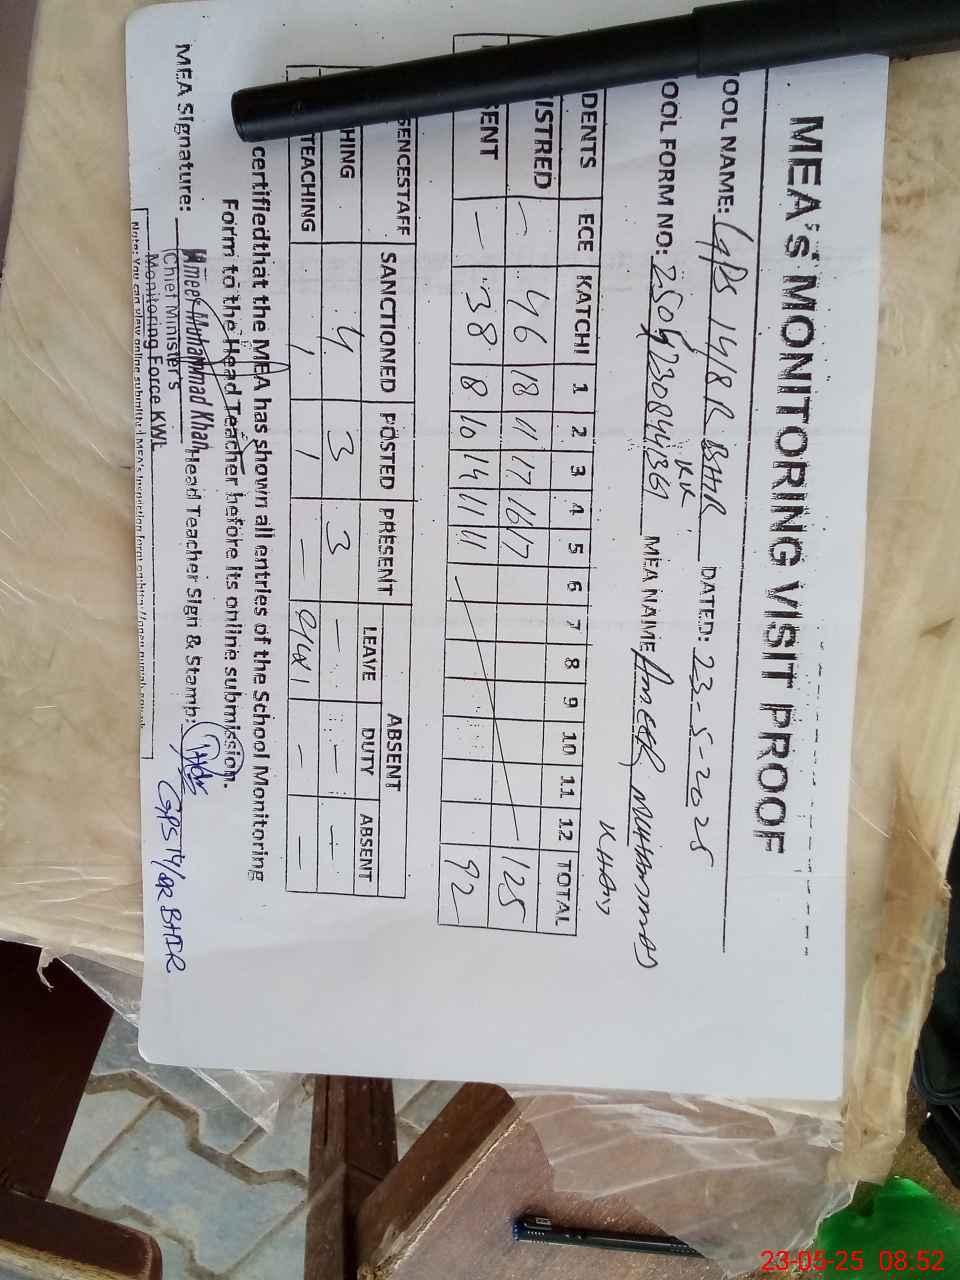 MEA's MONITORING VISIT PROOF
OOL NAME: GPS 14/8 R BHIR DATED: 23-5-2025
KK
OOL FORM NO: MEA NAME AMEER MUHAMMAD
KHAN
DENTS ECE KATCHI 1 2 3 4 5 6 7 8 9 10 11 12 TOTAL
ISTRED — 46 18 11 17 16 17 125
SENT — 38 8 10 14 11 11 92
SENCESTAFF SANCTIONED POSTED PRESENT ABSENT
LEAVE DUTY ABSENT
HING 4 3 3 — — —
TEACHING 1 1 — 1 — —
certified that the MEA has shown all entries of the School Monitoring
Form to the Head Teacher before its online submission.
MEA Signature: Ameer Muhammad Khan Head Teacher Sign & Stamp:
GPS 14/8R BHIR
Chief Minister's
Monitoring Force KWL
Note: You can view online submitted MEA's inspection form
23-05-25 08:52